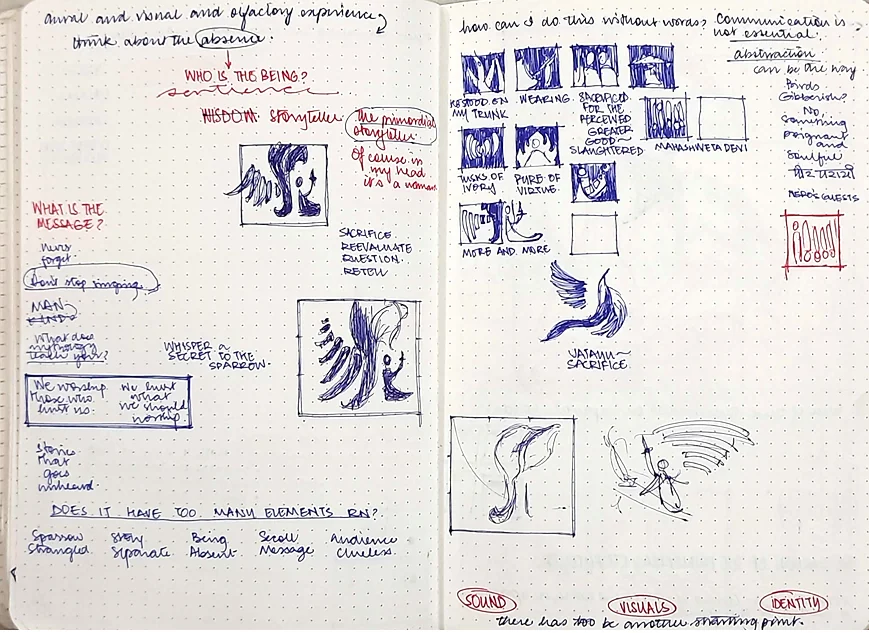 aural and visual and olfactory experience
think about the absence.
WHO IS THE BEING?
sentience
WISDOM. Storyteller.
The primordial
storyteller.
Of course in
my head
it's a woman
WHAT IS THE
MESSAGE?
never
forget.
Don't stop singing.
MAN
KIND
What does
mythology
teach you?
SACRIFICE.
REEVALUATE
QUESTION.
RETELL
WHISPER a
SECRET TO THE
SPARROW.
We worship
those who
hunt us.
We hunt
what
we should
worship.
Stories
that
goes
unheard.
DOES IT HAVE TOO MANY ELEMENTS RN?
Sparrow
Strangled.
Story
Separate
Being
Absent.
Scroll
Message
Audience
Clueless.
how can I do this without words? Communication is
not essential.
abstraction
can be the way
Birds
Gibberish?
No,
Something
poignant
and
Soulful
NERO'S GUESTS
STOOD ON
MY TRUNK
WEARING.
SACRIFICED
FOR THE
PERCEIVED
GREATER
GOOD~
SLAUGHTERED
MAHASHWETA DEVI
TUSKS OF
IVORY
PURE OF
VIRTUE.
MORE AND MORE
JATAYU~
SACRIFICE
SOUND
VISUALS
IDENTITY
there has too be another starting point.